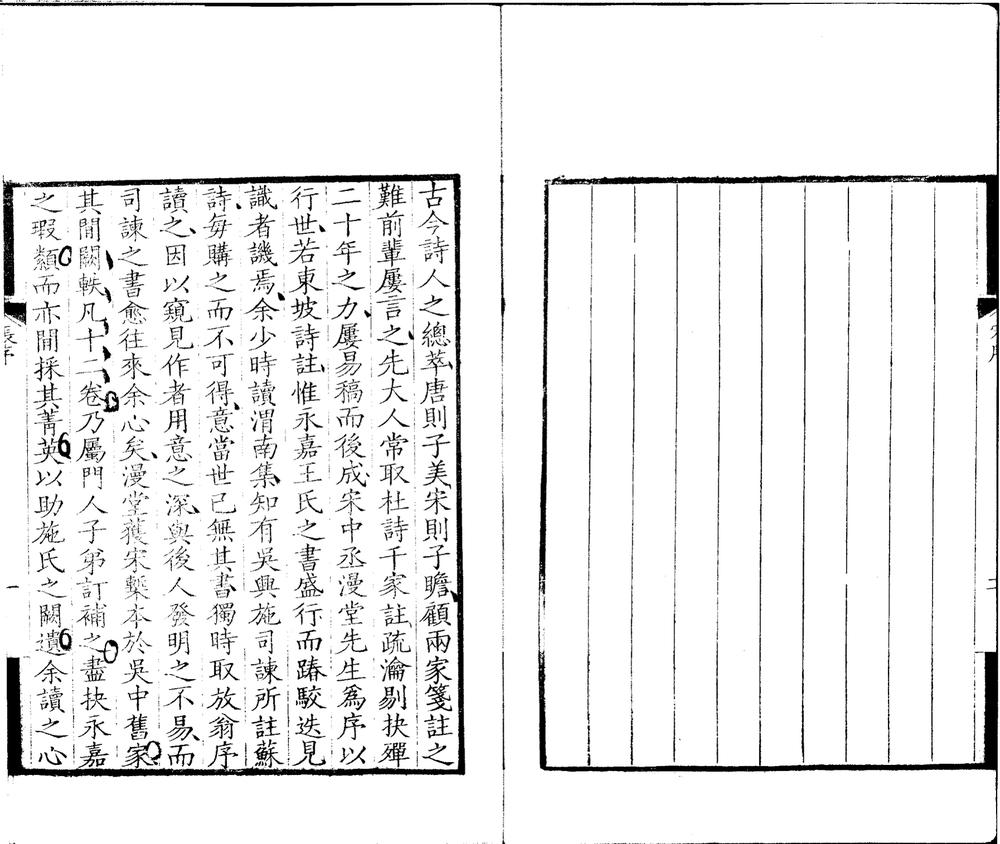 古今詩人之總萃唐則子美宋則子瞻顧兩家箋註之
難前輩屢言之先大人常取杜詩千家註疏瀹剔抉殫
二十年之力屢易稿而後成宋中丞漫堂先生為序以
行世若東坡詩註惟永嘉王氏之書盛行而踳駮迭見
識者譏焉余少時讀渭南集知有吳興施司諫所註蘇
詩每購之而不可得意當世已無其書獨時取放翁序
讀之因以窺見作者用意之深與後人發明之不易而
司諫之書愈往來余心矣漫堂獲宋槧本於吳中舊家
其間闕軼凡十二卷乃屬門人子弟訂補之盡抉永嘉
之瑕纇而亦間採其菁英以助施氏之闕遺余讀之心
張序
一